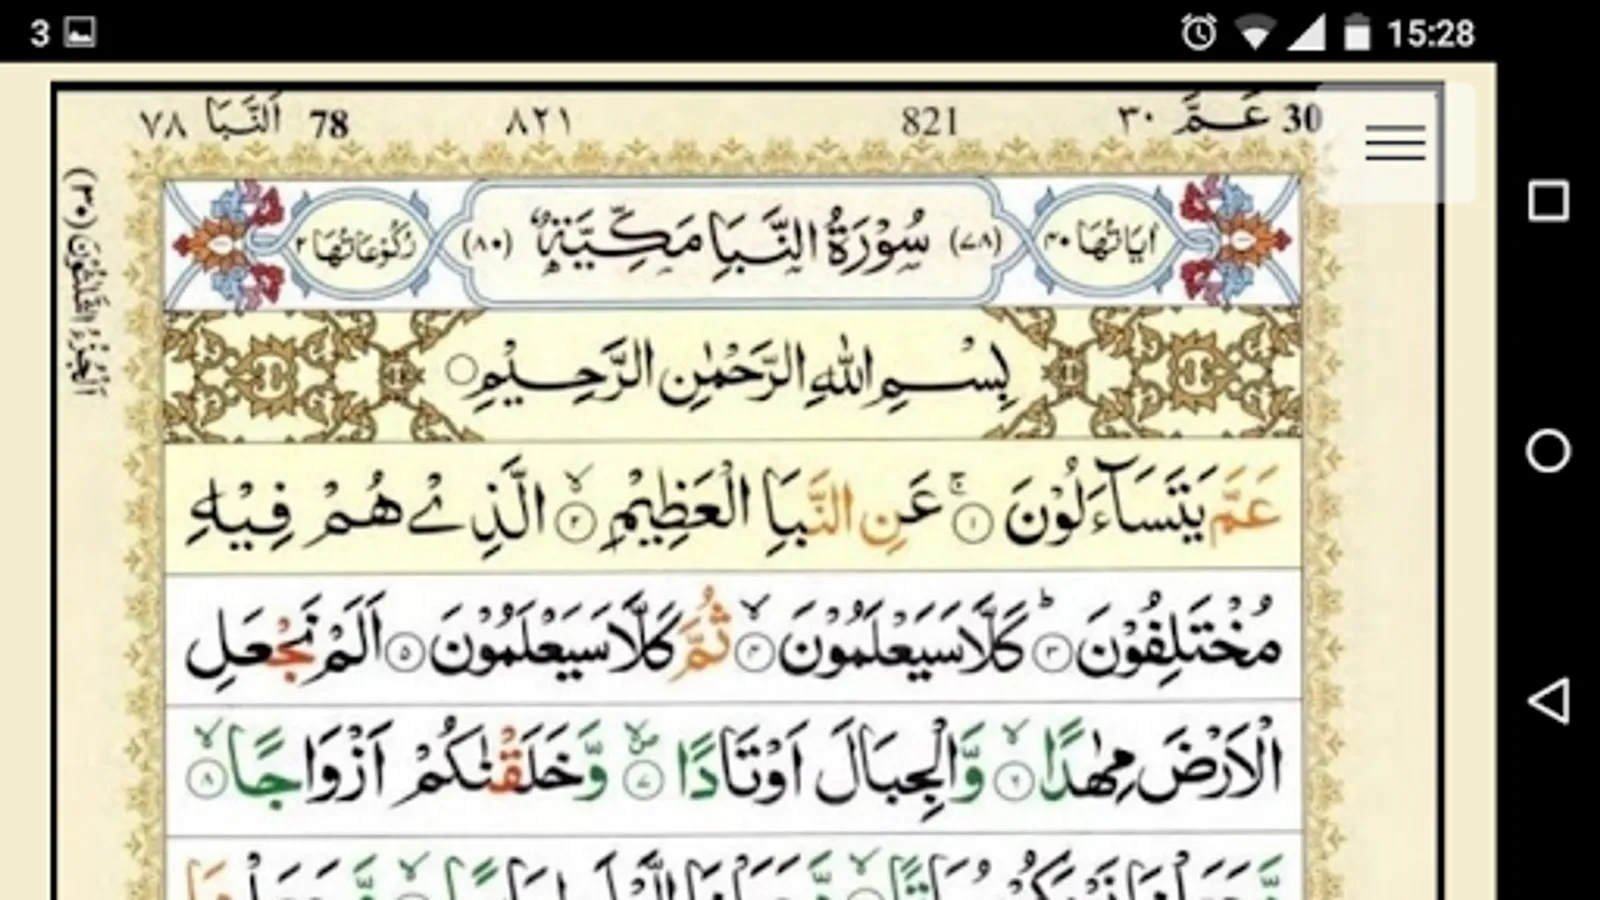 3 15:28
30 عَمَّ ٣٠ 821 ٨٢١ 78 اَلنَّبَا ٧٨
اٰيَاتُهَا ٤٠ (٧٨) سُوْرَةُ النَّبَاِ مَكِّيَّةٌ (٨٠) رُكُوْعَاتُهَا ٢
اَلْجُزْءُ الثَّلٰثُوْنَ (٣٠)
بِسْمِ اللّٰهِ الرَّحْمٰنِ الرَّحِيْمِ
عَمَّ يَتَسَآءَلُوْنَ ۚ ١ عَنِ النَّبَاِ الْعَظِيْمِ ۙ ٢ الَّذِيْ هُمْ فِيْهِ
مُخْتَلِفُوْنَ ؕ ٣ كَلَّا سَيَعْلَمُوْنَ ۙ ٤ ثُمَّ كَلَّا سَيَعْلَمُوْنَ ٥ اَلَمْ نَجْعَلِ
الْاَرْضَ مِهٰدًا ۙ ٦ وَّالْجِبَالَ اَوْتَادًا ۪ۙ ٧ وَّخَلَقْنٰكُمْ اَزْوَاجًا ۙ ٨